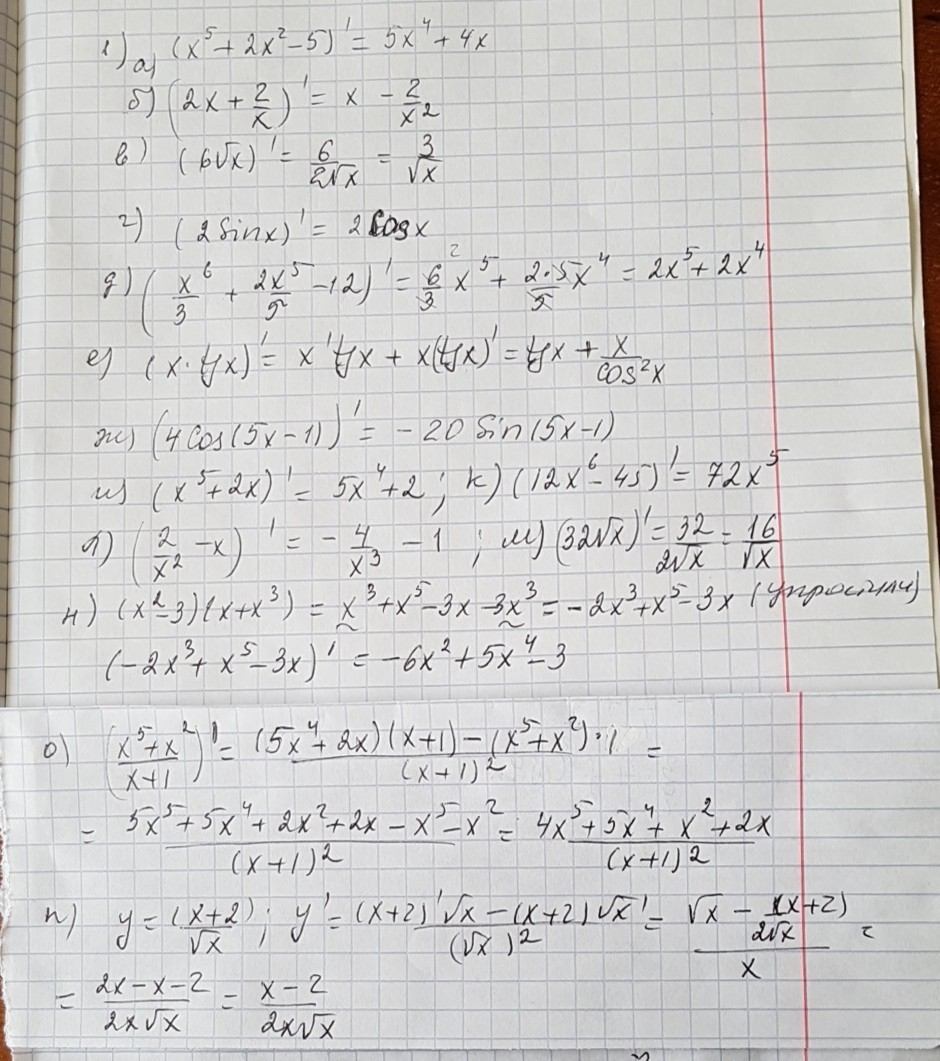 1) а) (x⁵ + 2x² - 5)' = 5x⁴ + 4x
б) (2x + 2/x)' = x - 2/x²
в) (6√x)' = 6/(2√x) = 3/√x
г) (2 sin x)' = 2 cos x
д) (x⁶/3 + 2x⁵/5 - 12)' = 6/3 ² x⁵ + 2·5x⁴/5 = 2x⁵ + 2x⁴
е) (x · tg x)' = x' tg x + x(tg x)' = tg x + x/cos²x
ж) (4 cos(5x - 1))' = -20 sin(5x - 1)
и) (x⁵ + 2x)' = 5x⁴ + 2 ; к) (12x⁶ - 45)' = 72x⁵
л) (2/x² - x)' = -4/x³ - 1 ; м) (32√x)' = 32/(2√x) = 16/√x
н) (x² - 3)(x + x³) = x³ + x⁵ - 3x - 3x³ = -2x³ + x⁵ - 3x (упростили)
(-2x³ + x⁵ - 3x)' = -6x² + 5x⁴ - 3
о) ((x⁵ + x²)/(x + 1))' = ((5x⁴ + 2x)(x + 1) - (x⁵ + x²)·1)/(x + 1)² =
= (5x⁵ + 5x⁴ + 2x² + 2x - x⁵ - x²)/(x + 1)² = (4x⁵ + 5x⁴ + x² + 2x)/(x + 1)²
п) y = (x + 2)/√x ; y' = ((x + 2)'√x - (x + 2)√x')/(√x)² = (√x - 1(x + 2)/(2√x))/x =
= (2x - x - 2)/(2x√x) = (x - 2)/(2x√x)